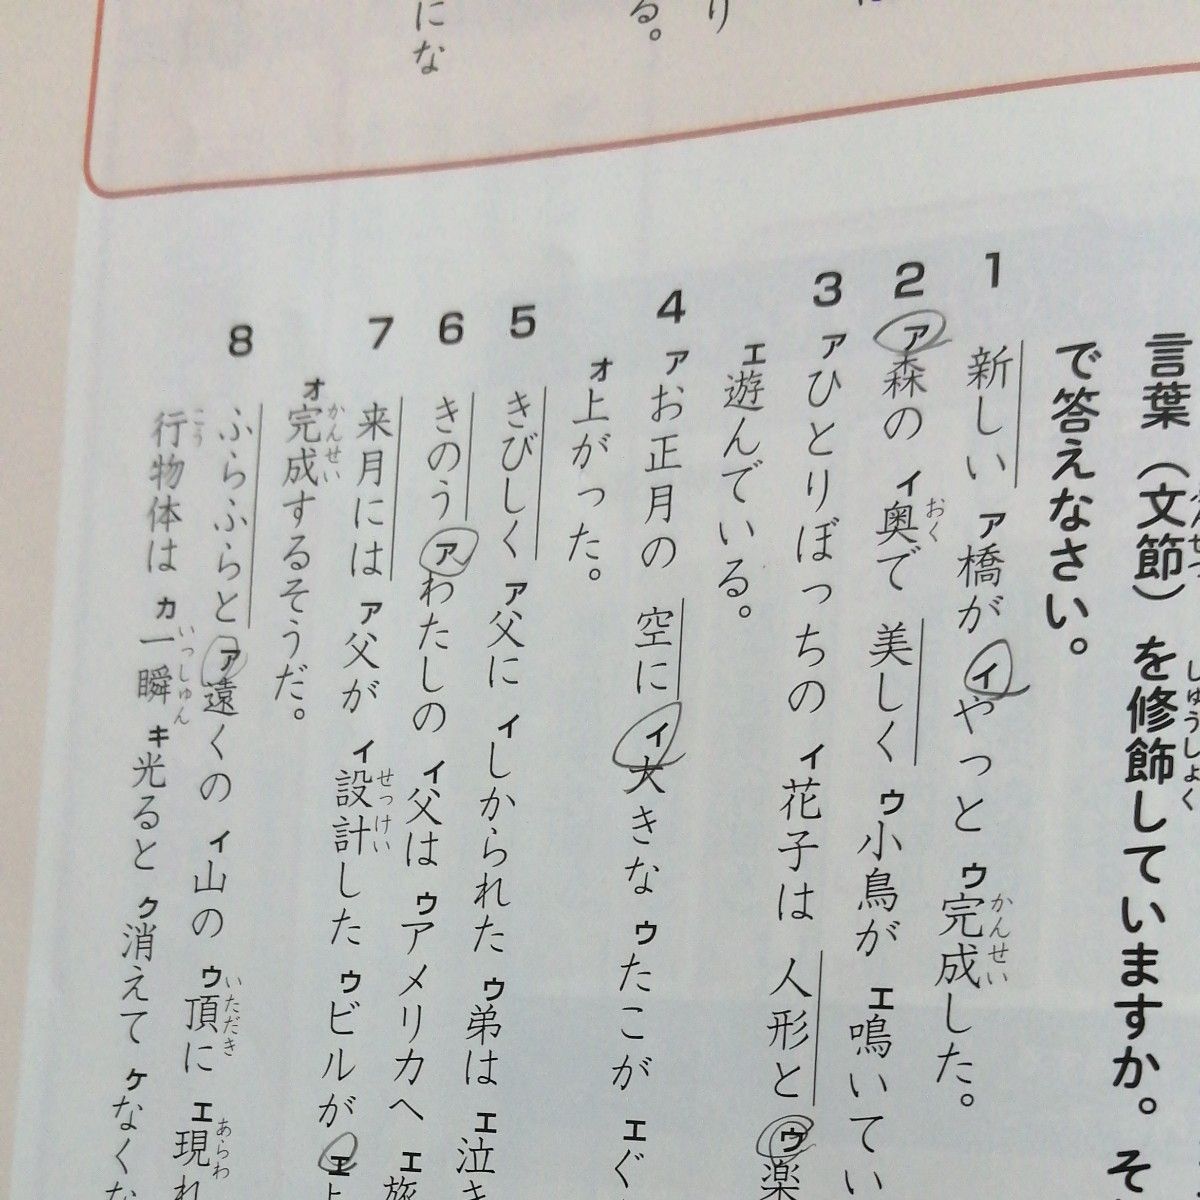 り
る。
にな
言葉（文節）を修飾していますか。そ
しゅうしょく
で答えなさい。
1 新しい ア橋が イやっと ウ完成した。
かんせい
2 ア森の イ奥で 美しく ウ小鳥が エ鳴いてい
おく
3 アひとりぼっちの イ花子は 人形と ウ楽
エ遊んでいる。
4 アお正月の 空に イ大きな ウたこが エぐ
オ上がった。
5 きびしく ア父に イしかられた ウ弟は エ泣き
6 きのう アわたしの イ父は ウアメリカへ エ旅
7 来月には ア父が イ設計した ウビルが エ
せっけい
オ完成するそうだ。
かんせい
8 ふらふらと ア遠くの イ山の ウ頂に エ現れ
いただき あらわ
行物体は カ一瞬 キ光ると ク消えて ケなくな
こう いっしゅん